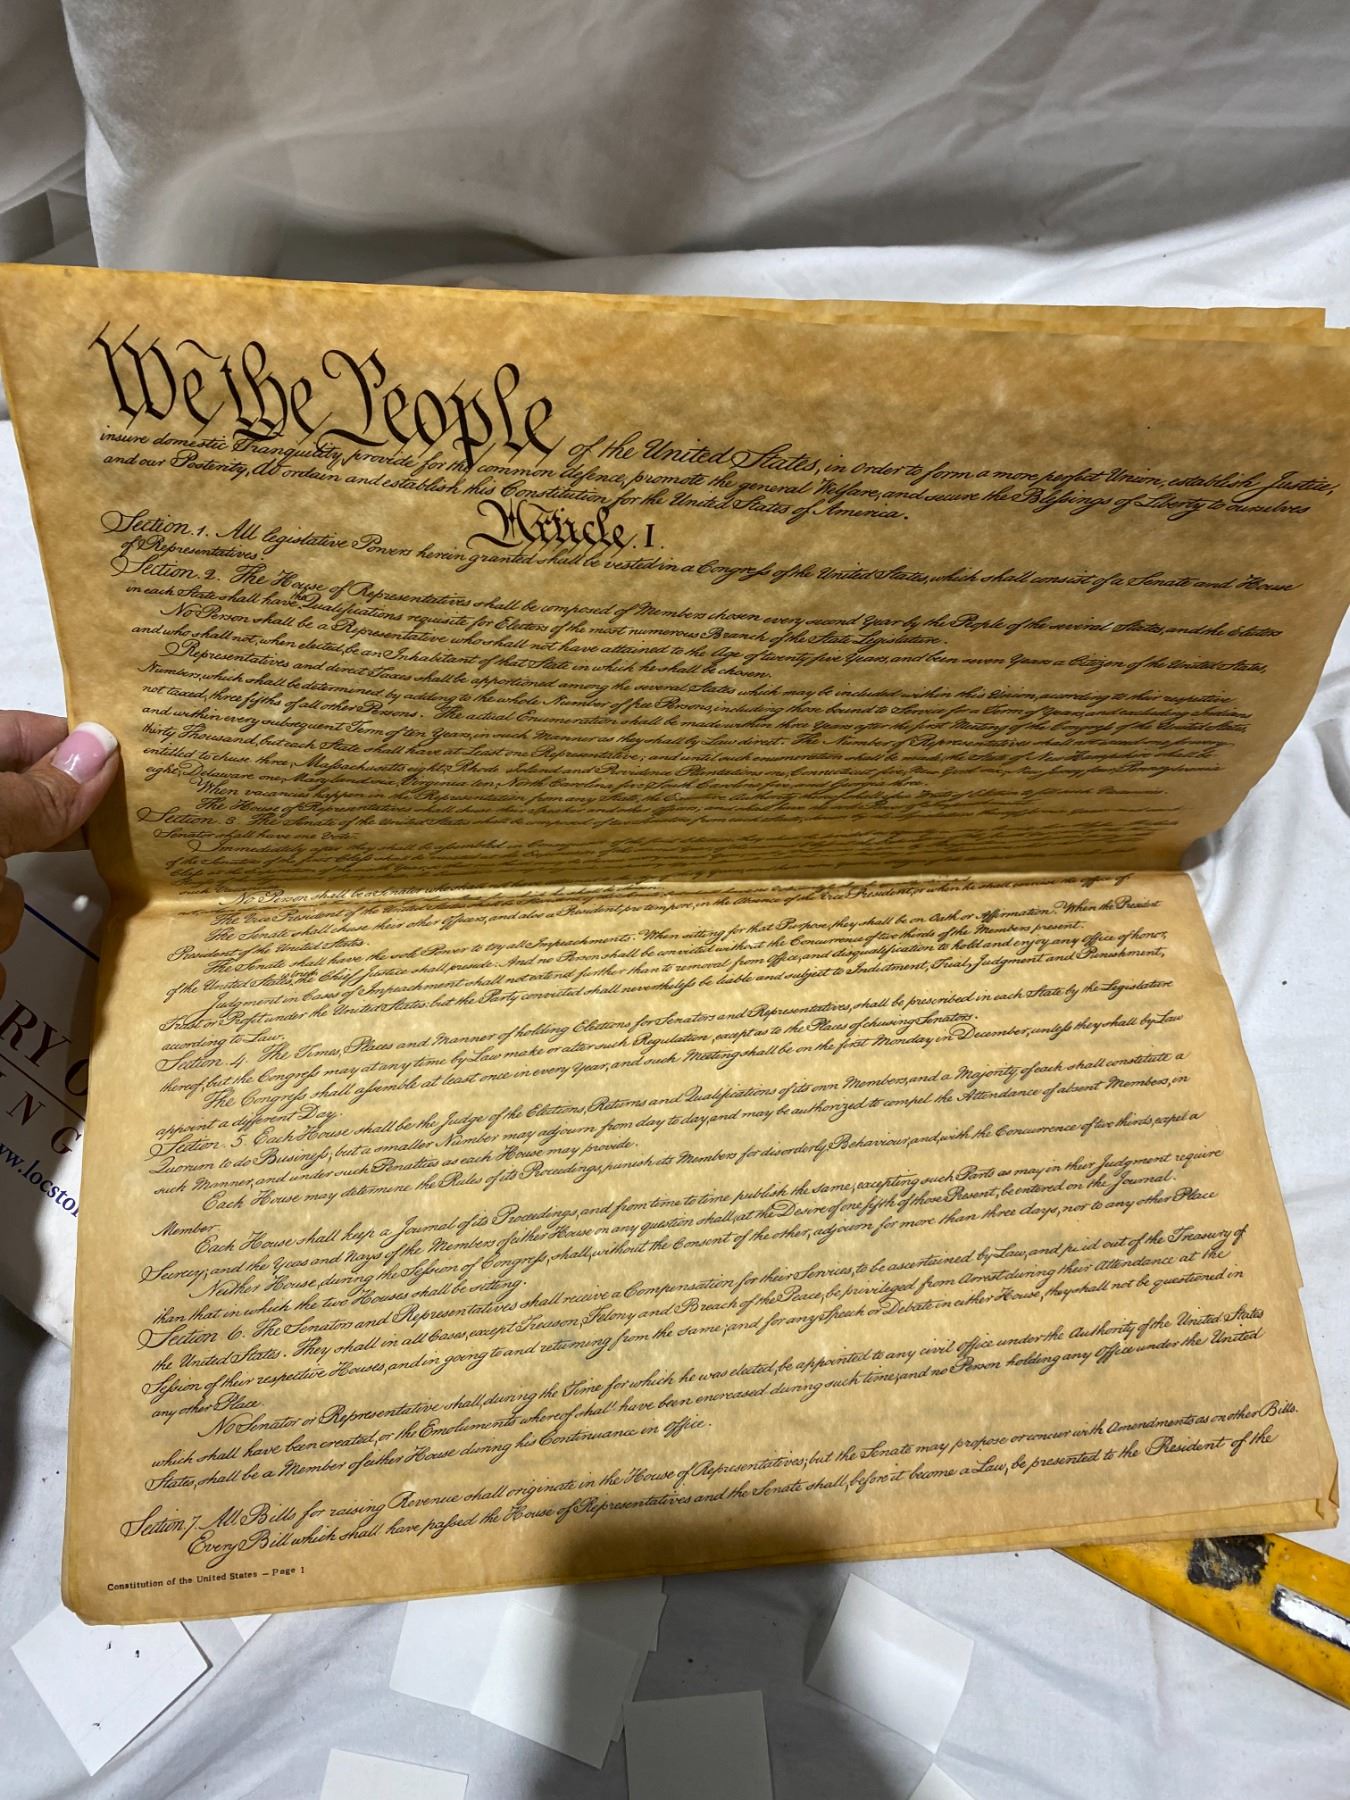 We the People of the United States, in Order to form a more perfect Union, establish Justice,
insure domestic Tranquility, provide for the common defence, promote the general Welfare, and secure the Blessings of Liberty to ourselves
and our Posterity, do ordain and establish this Constitution for the United States of America.
Article. I.
Section. 1. All legislative Powers herein granted shall be vested in a Congress of the United States, which shall consist of a Senate and House
of Representatives.
Section. 2. The House of Representatives shall be composed of Members chosen every second Year by the People of the several States, and the Electors
in each State shall have the Qualifications requisite for Electors of the most numerous Branch of the State Legislature.
No Person shall be a Representative who shall not have attained to the Age of twenty five Years, and been seven Years a Citizen of the United States,
and who shall not, when elected, be an Inhabitant of that State in which he shall be chosen.
Representatives and direct Taxes shall be apportioned among the several States which may be included within this Union, according to their respective
Numbers, which shall be determined by adding to the whole Number of free Persons, including those bound to Service for a Term of Years, and excluding Indians
not taxed, three fifths of all other Persons. The actual Enumeration shall be made within three Years after the first Meeting of the Congress of the United States,
and within every subsequent Term of ten Years, in such Manner as they shall by Law direct. The Number of Representatives shall not exceed one for every
thirty Thousand, but each State shall have at Least one Representative; and until such enumeration shall be made, the State of New Hampshire shall be
entitled to chuse three, Massachusetts eight, Rhode Island and Providence Plantations one, Connecticut five, New York six, New Jersey four, Pennsylvania
eight, Delaware one, Maryland six, Virginia ten, North Carolina five, South Carolina five, and Georgia three.
When vacancies happen in the Representation from any State, the Executive Authority
The House of Representatives shall chuse their Speaker and other Officers;
Section. 3. The Senate of the United States shall be composed of two Senators from each State,
Senator shall have one Vote.
Immediately after they shall be assembled in Consequence of the first Election,
of the Senators of the first Class shall be vacated at the
No Person shall be a Senator who shall not have
The Vice President of the United States shall be President of the Senate
The Senate shall chuse their other Officers, and also a President pro tempore, in the Absence of the Vice President, or when he shall exercise the Office of
President of the United States.
The Senate shall have the sole Power to try all Impeachments. When sitting for that Purpose, they shall be on Oath or Affirmation. When the President
of the United States is tried, the Chief Justice shall preside: And no Person shall be convicted without the Concurrence of two thirds of the Members present.
Judgment in Cases of Impeachment shall not extend further than to removal from Office, and disqualification to hold and enjoy any Office of honor,
Trust or Profit under the United States: but the Party convicted shall nevertheless be liable and subject to Indictment, Trial, Judgment and Punishment,
according to Law.
Section. 4. The Times, Places and Manner of holding Elections for Senators and Representatives, shall be prescribed in each State by the Legislature
thereof; but the Congress may at any time by Law make or alter such Regulation, except as to the Places of chusing Senators.
The Congress shall assemble at least once in every Year, and such Meeting shall be on the first Monday in December, unless they shall by Law
appoint a different Day.
Section. 5. Each House shall be the Judge of the Elections, Returns and Qualifications of its own Members, and a Majority of each shall constitute a
Quorum to do Business; but a smaller Number may adjourn from day to day, and may be authorized to compel the Attendance of absent Members, in
such Manner, and under such Penalties as each House may provide.
Each House may determine the Rules of its Proceedings, punish its Members for disorderly Behaviour, and, with the Concurrence of two thirds, expel a
Member.
Each House shall keep a Journal of its Proceedings, and from time to time publish the same, excepting such Parts as may in their Judgment require
Secrecy; and the Yeas and Nays of the Members of either House on any question shall, at the Desire of one fifth of those Present, be entered on the Journal.
Neither House, during the Session of Congress, shall, without the Consent of the other, adjourn for more than three days, nor to any other Place
than that in which the two Houses shall be sitting.
Section 6. The Senators and Representatives shall receive a Compensation for their Services, to be ascertained by Law, and paid out of the Treasury of
the United States. They shall in all Cases, except Treason, Felony and Breach of the Peace, be privileged from Arrest during their Attendance at the
Session of their respective Houses, and in going to and returning from the same; and for any Speech or Debate in either House, they shall not be questioned in
any other Place.
No Senator or Representative shall, during the Time for which he was elected, be appointed to any civil Office under the Authority of the United States
which shall have been created, or the Emoluments whereof shall have been encreased during such time; and no Person holding any Office under the United
States, shall be a Member of either House during his Continuance in Office.
Section. 7. All Bills for raising Revenue shall originate in the House of Representatives; but the Senate may propose or concur with Amendments as on other Bills.
Every Bill which shall have passed the House of Representatives and the Senate shall, before it become a Law, be presented to the President of the
Constitution of the United States — Page 1
RY O
ING
www.locsto